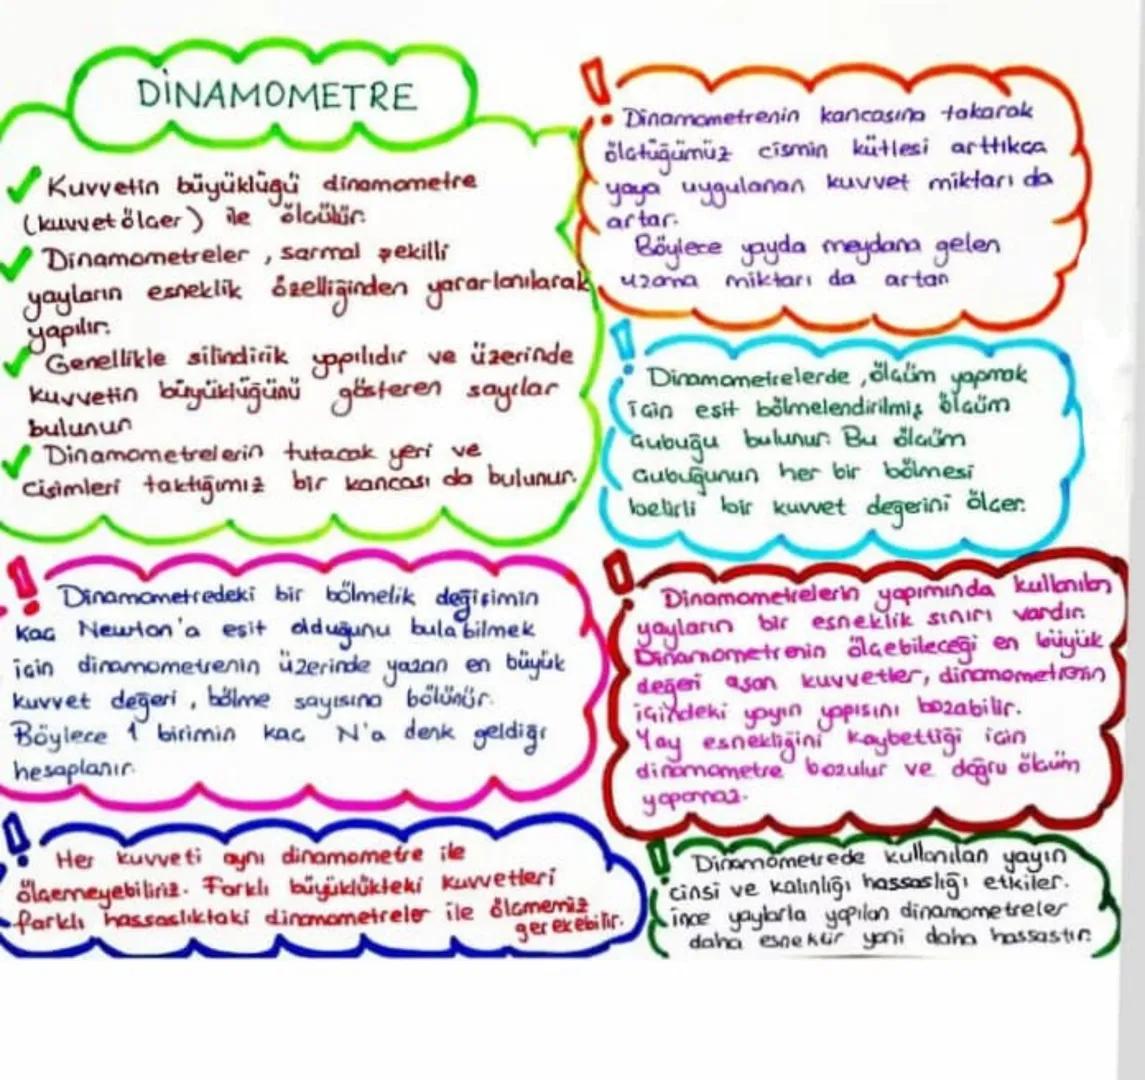 DİNAMOMETRE
Kuvvetin büyüklüğü dinamometre
(kuvvet ölçer) ile ölçülür.
Dinamometreler, sarmal şekilli
yayların esneklik özelliğinden yararlanılarak
yapılır.
Genellikle silindirik yapılıdır ve üzerinde
kuvvetin büyüklüğünü gösteren sayılar
bulunur
Dinamometrelerin tutacak yeri ve
cisimleri taktığımız bir kancası da bulunur.
Dinamometrenin kancasına takarak
ölçtüğümüz cismin kütlesi arttıkça
yaya uygulanan kuvvet miktarı da
artar.
Böylece yayda meydana gelen
uzama miktarı da artan
Dinamometrelerde, ölçüm yapmak
için eşit bölmelendirilmiş ölçüm
çubuğu bulunur. Bu ölçüm
çubuğunun her bir bölmesi
belirli bir kuvvet değerini ölçer.
Dinamometredeki bir bölmelik değişimin
kaç Newton'a eşit olduğunu bulabilmek
için dinamometrenin üzerinde yazan en büyük
kuvvet değeri, bölme sayısına bölünür.
Böylece 1 birimin kaç N'a denk geldiği
hesaplanır.
Dinamometrelerin yapımında kullanılan
yayların bir esneklik sınırı vardır.
Dinamometrenin ölçebileceği en büyük
değeri aşan kuvvetler, dinamometrenin
içindeki yayın yapısını bozabilir.
Yay esnekliğini kaybettiği için
dinamometre bozulur ve doğru ölçüm
yapamaz.
Her kuvveti aynı dinamometre ile
ölçemeyebiliriz. Farklı büyüklükteki kuvvetleri
farklı hassaslıktaki dinamometreler ile ölçmemiz
gerekebilir.
Dinamometrede kullanılan yayın
cinsi ve kalınlığı hassaslığı etkiler.
İnce yaylarla yapılan dinamometreler
daha esnektir yani daha hassastır.